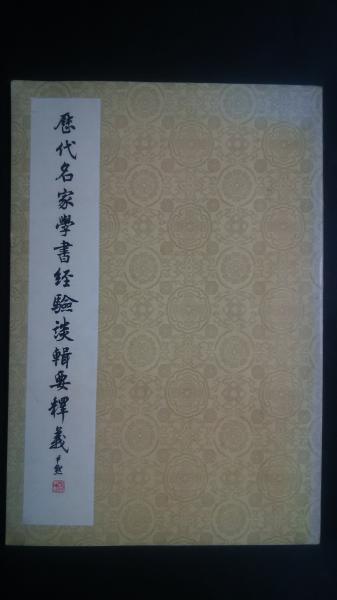 歷代名家學書经驗談輯要釋義
尹默